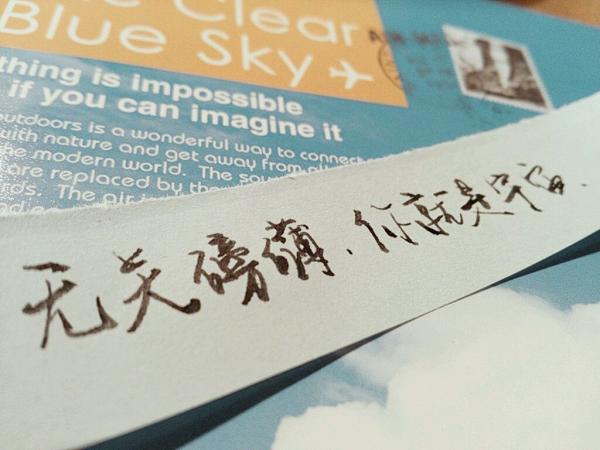 he Clear
Blue Sky
thing is impossible
if you can imagine it
outdoors is a wonderful way to connect
with nature and get away from
the modern world. The
are replaced by the
The air
无关磅礴，你就是宇宙.